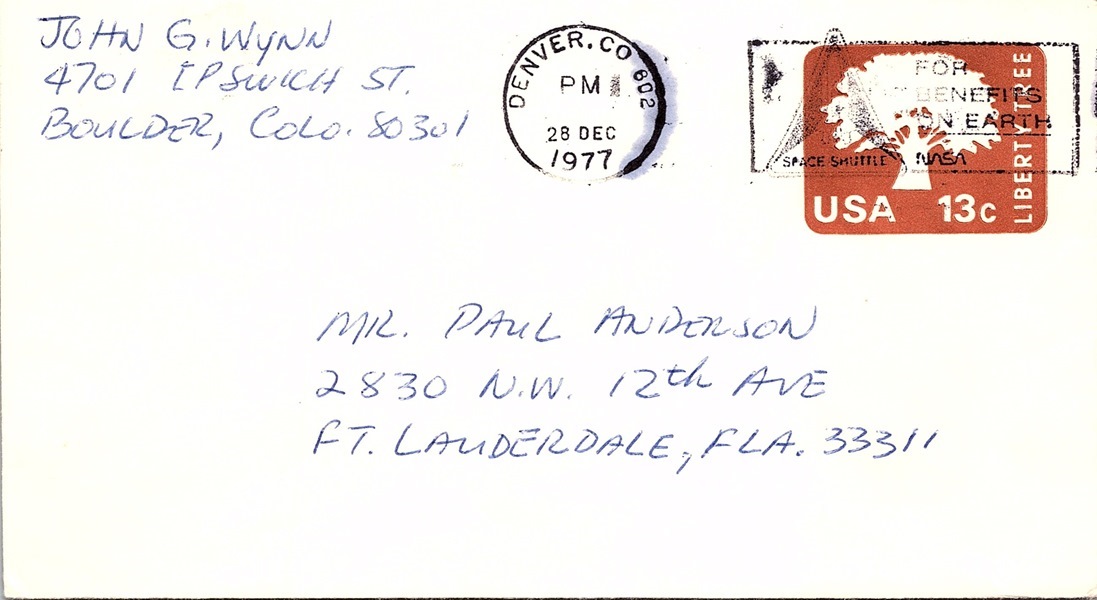 JOHN G. WYNN
4701 IPSWICH ST.
BOULDER, COLO. 80301
DENVER, CO 802
PM
28 DEC
1977
FOR
BENEFITS
ON EARTH
SPACE SHUTTLE NASA
LIBERTY TREE
USA 13c
MR. PAUL ANDERSON
2830 N.W. 12th AVE
FT. LAUDERDALE, FLA. 33311